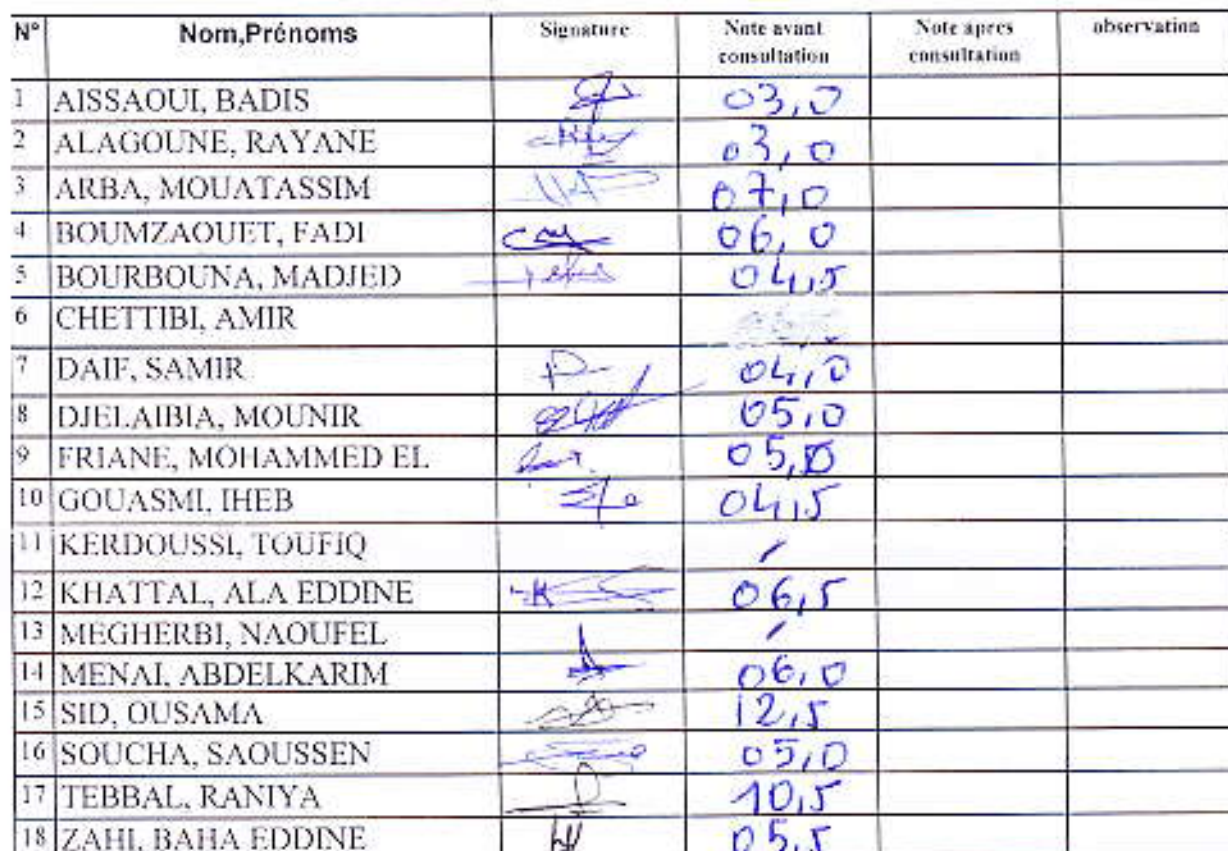 N° Nom,Prénoms Signature Note avant consultation Note apres consultation observation
1 AISSAOUI, BADIS 03,0
2 ALAGOUNE, RAYANE 03,0
3 ARBA, MOUATASSIM 07,0
4 BOUMZAOUET, FADI 06,0
5 BOURBOUNA, MADJED 04,5
6 CHETTIBI, AMIR
7 DAIF, SAMIR 04,0
8 DJELAIBIA, MOUNIR 05,0
9 FRIANE, MOHAMMED EL 05,0
10 GOUASMI, IHEB 04,5
11 KERDOUSSI, TOUFIQ /
12 KHATTAL, ALA EDDINE 06,5
13 MEGHERBI, NAOUFEL /
14 MENAI, ABDELKARIM 06,0
15 SID, OUSAMA 12,5
16 SOUCHA, SAOUSSEN 05,0
17 TEBBAL, RANIYA 10,5
18 ZAHI, BAHA EDDINE 05,5